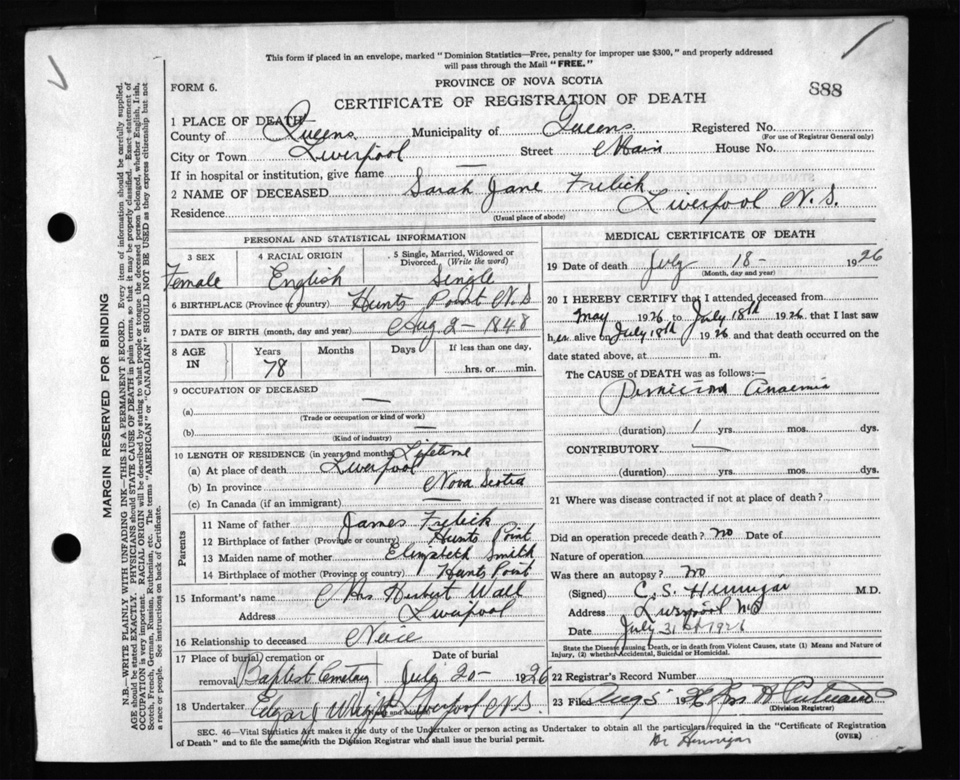 This form if placed in an envelope, marked "Dominion Statistics—Free, penalty for improper use $300," and properly addressed
will pass through the Mail "FREE."
FORM 6.
PROVINCE OF NOVA SCOTIA
888
CERTIFICATE OF REGISTRATION OF DEATH
1 PLACE OF DEATH
County of Queens Municipality of Queens Registered No.
(For use of Registrar General only)
City or Town Liverpool Street Main House No.
If in hospital or institution, give name —
2 NAME OF DECEASED Sarah Jane Frelick
Residence Liverpool N.S.
(Usual place of abode)
PERSONAL AND STATISTICAL INFORMATION
3 SEX 4 RACIAL ORIGIN 5 Single, Married, Widowed or
Divorced. (Write the word)
Female English Single
6 BIRTHPLACE (Province or country) Hunts Point N.S
7 DATE OF BIRTH (month, day and year) Aug 2 - 1848
8 AGE IN Years Months Days If less than one day,
78 hrs. or min.
9 OCCUPATION OF DECEASED
(a) —
(Trade or occupation or kind of work)
(b) —
(Kind of industry)
10 LENGTH OF RESIDENCE (in years and months) Lifetime
(a) At place of death Liverpool
(b) In province Nova Scotia
(c) In Canada (if an immigrant) —
Parents
11 Name of father James Frelick
12 Birthplace of father (Province or country) Hunts Point
13 Maiden name of mother Elizabeth Smith
14 Birthplace of mother (Province or country) Hunts Point
15 Informant's name Mrs Herbert Wall
Address Liverpool
16 Relationship to deceased Neice
17 Place of burial, cremation or removal Date of burial
Baptist Cemetary July 20 - 1926
18 Undertaker Edgar J Wright Liverpool N.S.
MEDICAL CERTIFICATE OF DEATH
19 Date of death July 18 - 1926
(Month, day and year)
20 I HEREBY CERTIFY that I attended deceased from
May 1926 to July 18th 1926, that I last saw
her alive on July 18th 1926 and that death occurred on the
date stated above, at m.
The CAUSE OF DEATH was as follows:—
Pernicious Anaemia
(duration) 1 yrs. mos. dys.
CONTRIBUTORY —
(duration) yrs. mos. dys.
21 Where was disease contracted if not at place of death?
Did an operation precede death? no Date of
Nature of operation
Was there an autopsy? no
(Signed) C. S. Hennigar M.D.
Address Liverpool NS
Date July 31st 1926
State the Disease causing Death, or in death from Violent Causes, state (1) Means and Nature of
Injury, (2) whether Accidental, Suicidal or Homicidal.
22 Registrar's Record Number
23 Filed Aug 5 1926
(Division Registrar)
SEC. 46—Vital Statistics Act makes it the duty of the Undertaker or person acting as Undertaker to obtain all the particulars required in the "Certificate of Registration
of Death" and to file the same with the Division Registrar who shall issue the burial permit.
Dr Hennigar
(OVER)
MARGIN RESERVED FOR BINDING
N.B.—WRITE PLAINLY WITH UNFADING INK—THIS IS A PERMANENT RECORD. Every item of information should be carefully supplied.
AGE should be stated EXACTLY. PHYSICIANS should STATE CAUSE OF DEATH in plain terms, so that it may be properly classified. Exact statement of
OCCUPATION is very important. RACIAL ORIGIN will be described by stating to what people or tongue the deceased person belonged, whether English, Irish,
Scotch, French, German, Russian, Ruthenian, etc. The terms "AMERICAN" or "CANADIAN" SHOULD NOT BE USED as they express citizenship but not
a race or people. See instructions on back of Certificate.